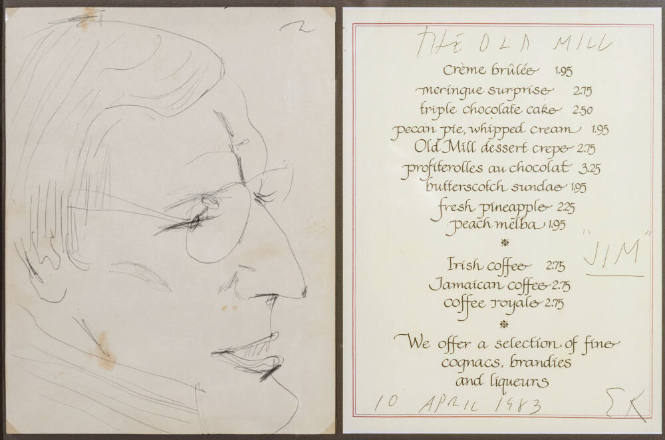 THE OLD MILL
Crème brûlée 1.95
meringue surprise 2.75
triple chocolate cake 2.50
pecan pie, whipped cream 1.95
Old Mill dessert crepe 2.75
profiterolles au chocolat 3.25
butterscotch sundae 1.95
fresh pineapple 2.25
peach melba 1.95
"JIM"
Irish coffee 2.75
Jamaican coffee 2.75
coffee royale 2.75
We offer a selection of fine
cognacs, brandies
and liqueurs
10 APRIL 1983 EK